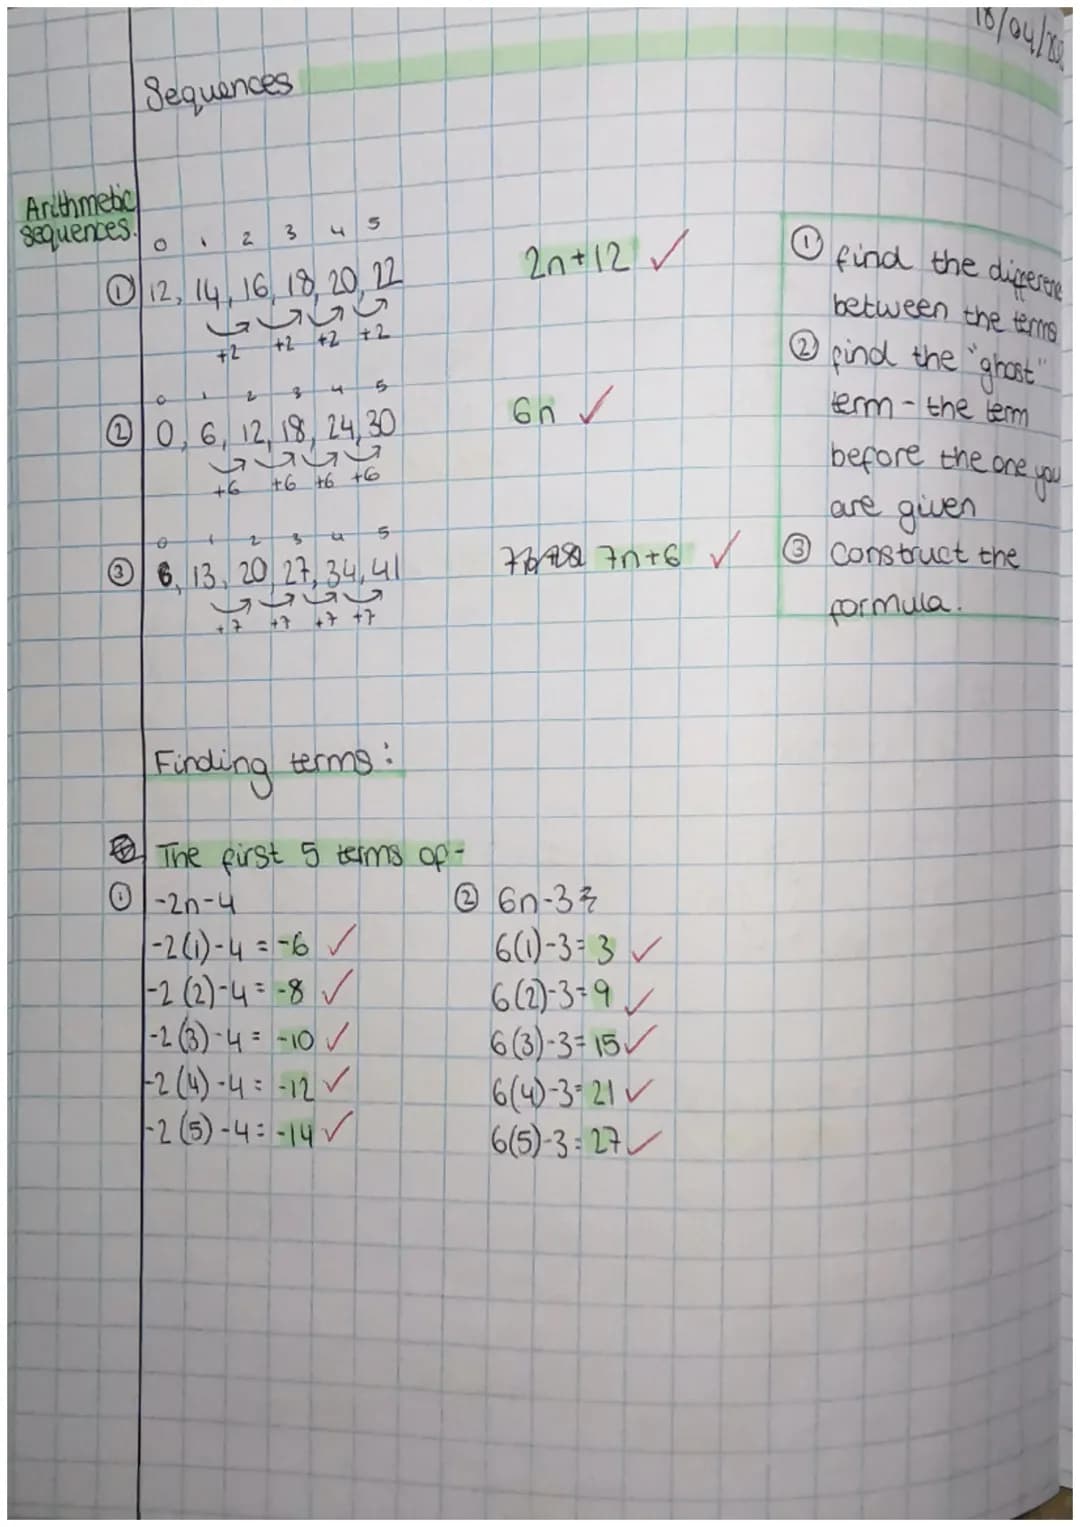 18/04/
Sequences
Arithmetic
sequences.
0 1 2 3 4 5
① 12, 14, 16, 18, 20, 22
+2 +2 +2 +2
2n+12 ✓
0 1 2 3 4 5
② 0, 6, 12, 18, 24, 30
+6 +6 +6 +6
6n ✓
0 1 2 3 4 5
③ 6, 13, 20, 27, 34, 41
+7 +7 +7 +7
7n+6 ✓
① find the difference
between the terms
② find the "ghost"
term - the term
before the one you
are given
③ Construct the
formula.
Finding terms:
The first 5 terms of-
① -2n-4
-2(1)-4 = -6 ✓
-2(2)-4 = -8 ✓
-2(3)-4 = -10 ✓
-2(4)-4 = -12 ✓
-2(5)-4 = -14 ✓
② 6n-3
6(1)-3 = 3 ✓
6(2)-3 = 9 ✓
6(3)-3 = 15 ✓
6(4)-3 = 21 ✓
6(5)-3 = 27 ✓